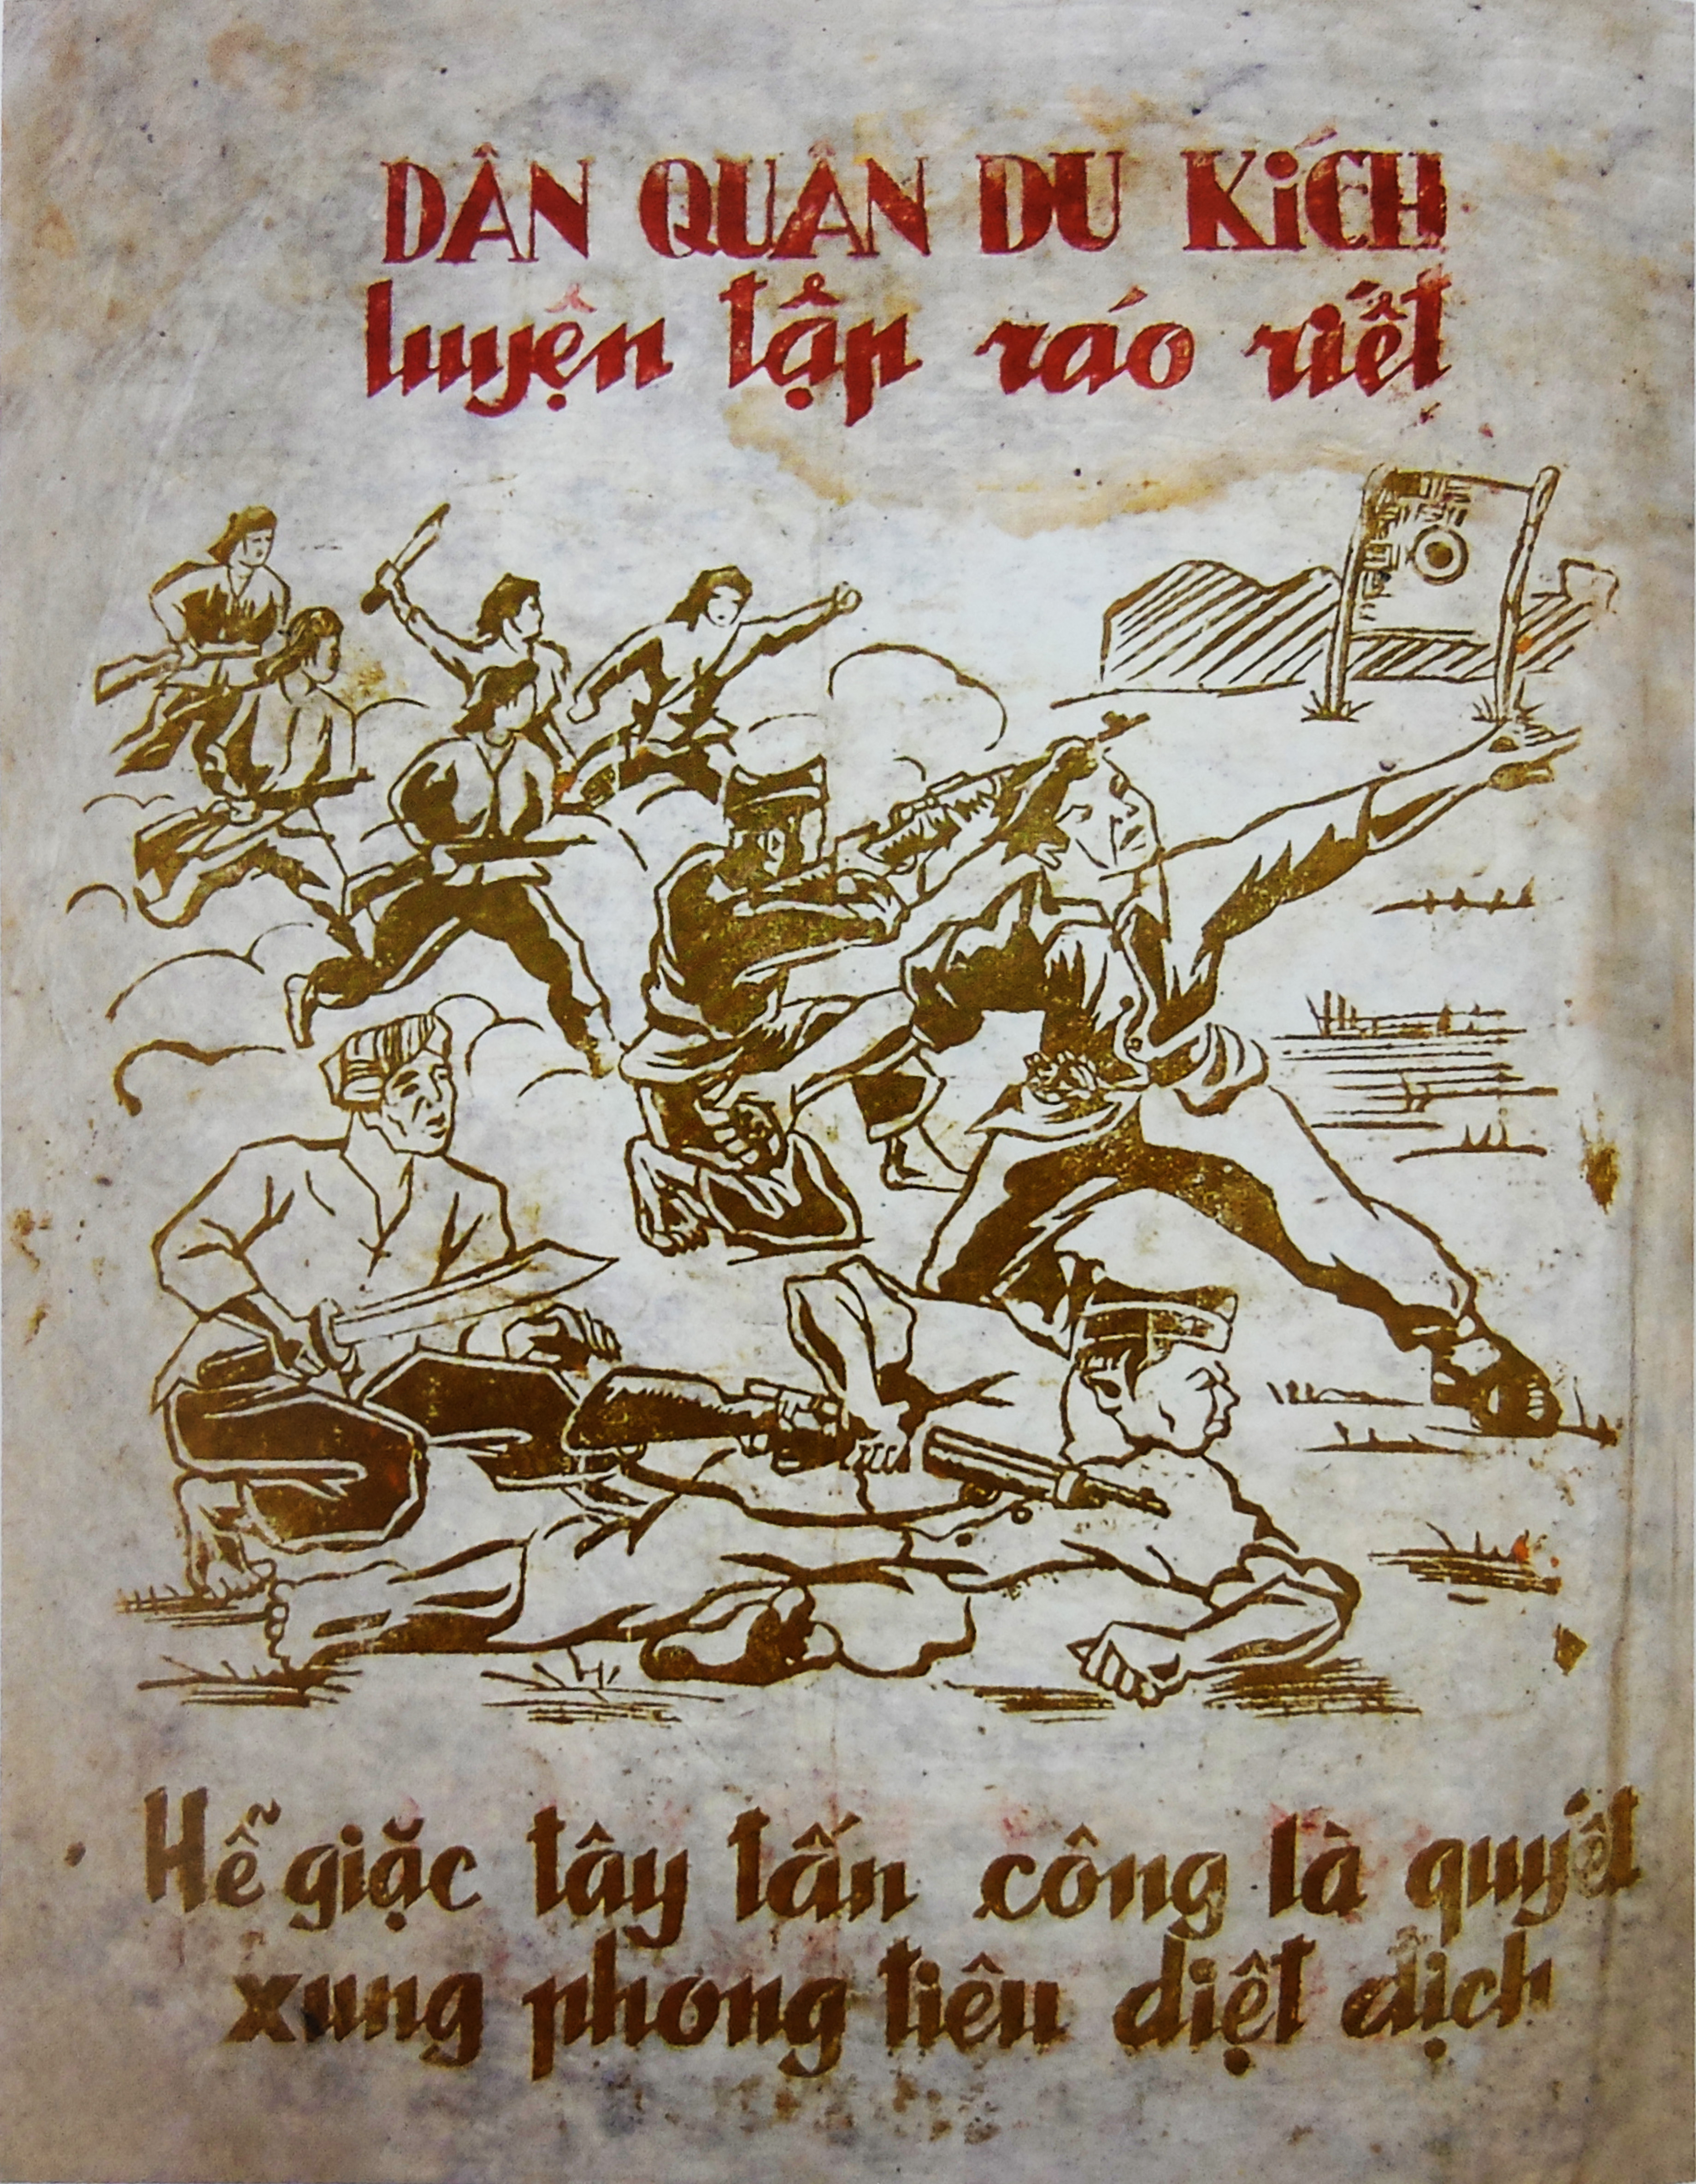 DÂN QUÂN DU KíCH
luyện tập ráo riết
Hễ giặc tây tấn công là quyết
xung phong tiêu diệt địch